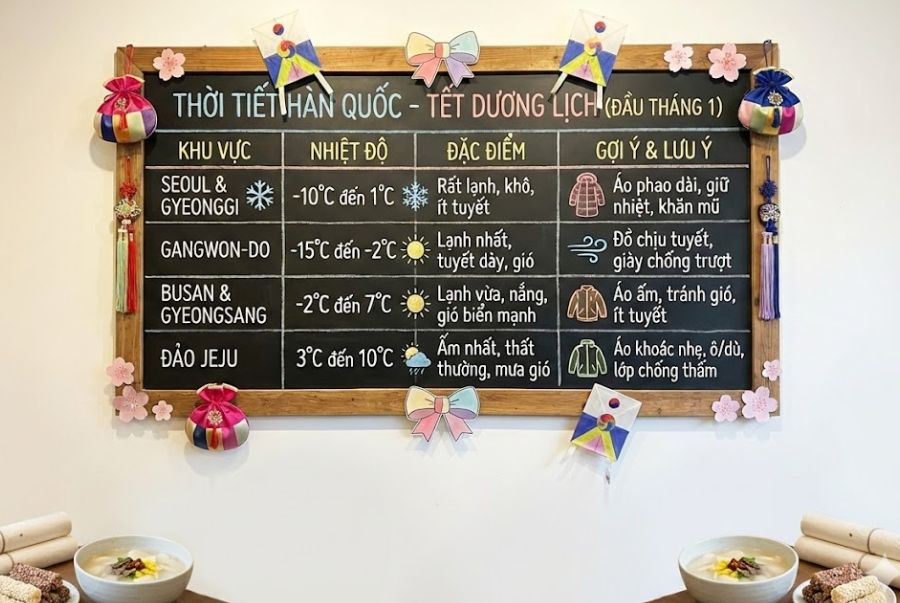 THỜI TIẾT HÀN QUỐC - TẾT DƯƠNG LỊCH (ĐẦU THÁNG 1)
KHU VỰC
NHIỆT ĐỘ
ĐẶC ĐIỂM
GỢI Ý & LƯU Ý
SEOUL &
GYEONGGI
-10°C đến 1°C
Rất lạnh, khô,
ít tuyết
Áo phao dài, giữ
nhiệt, khăn mũ
GANGWON-DO
-15°C đến -2°C
Lạnh nhất,
tuyết dày, gió
Đồ chịu tuyết,
giày chống trượt
BUSAN &
GYEONGSANG
-2°C đến 7°C
Lạnh vừa, nắng,
gió biển mạnh
Áo ấm, tránh gió,
ít tuyết
ĐẢO JEJU
3°C đến 10°C
Ấm nhất, thất
thường, mưa gió
Áo khoác nhẹ, ô/dù,
lớp chống thấm